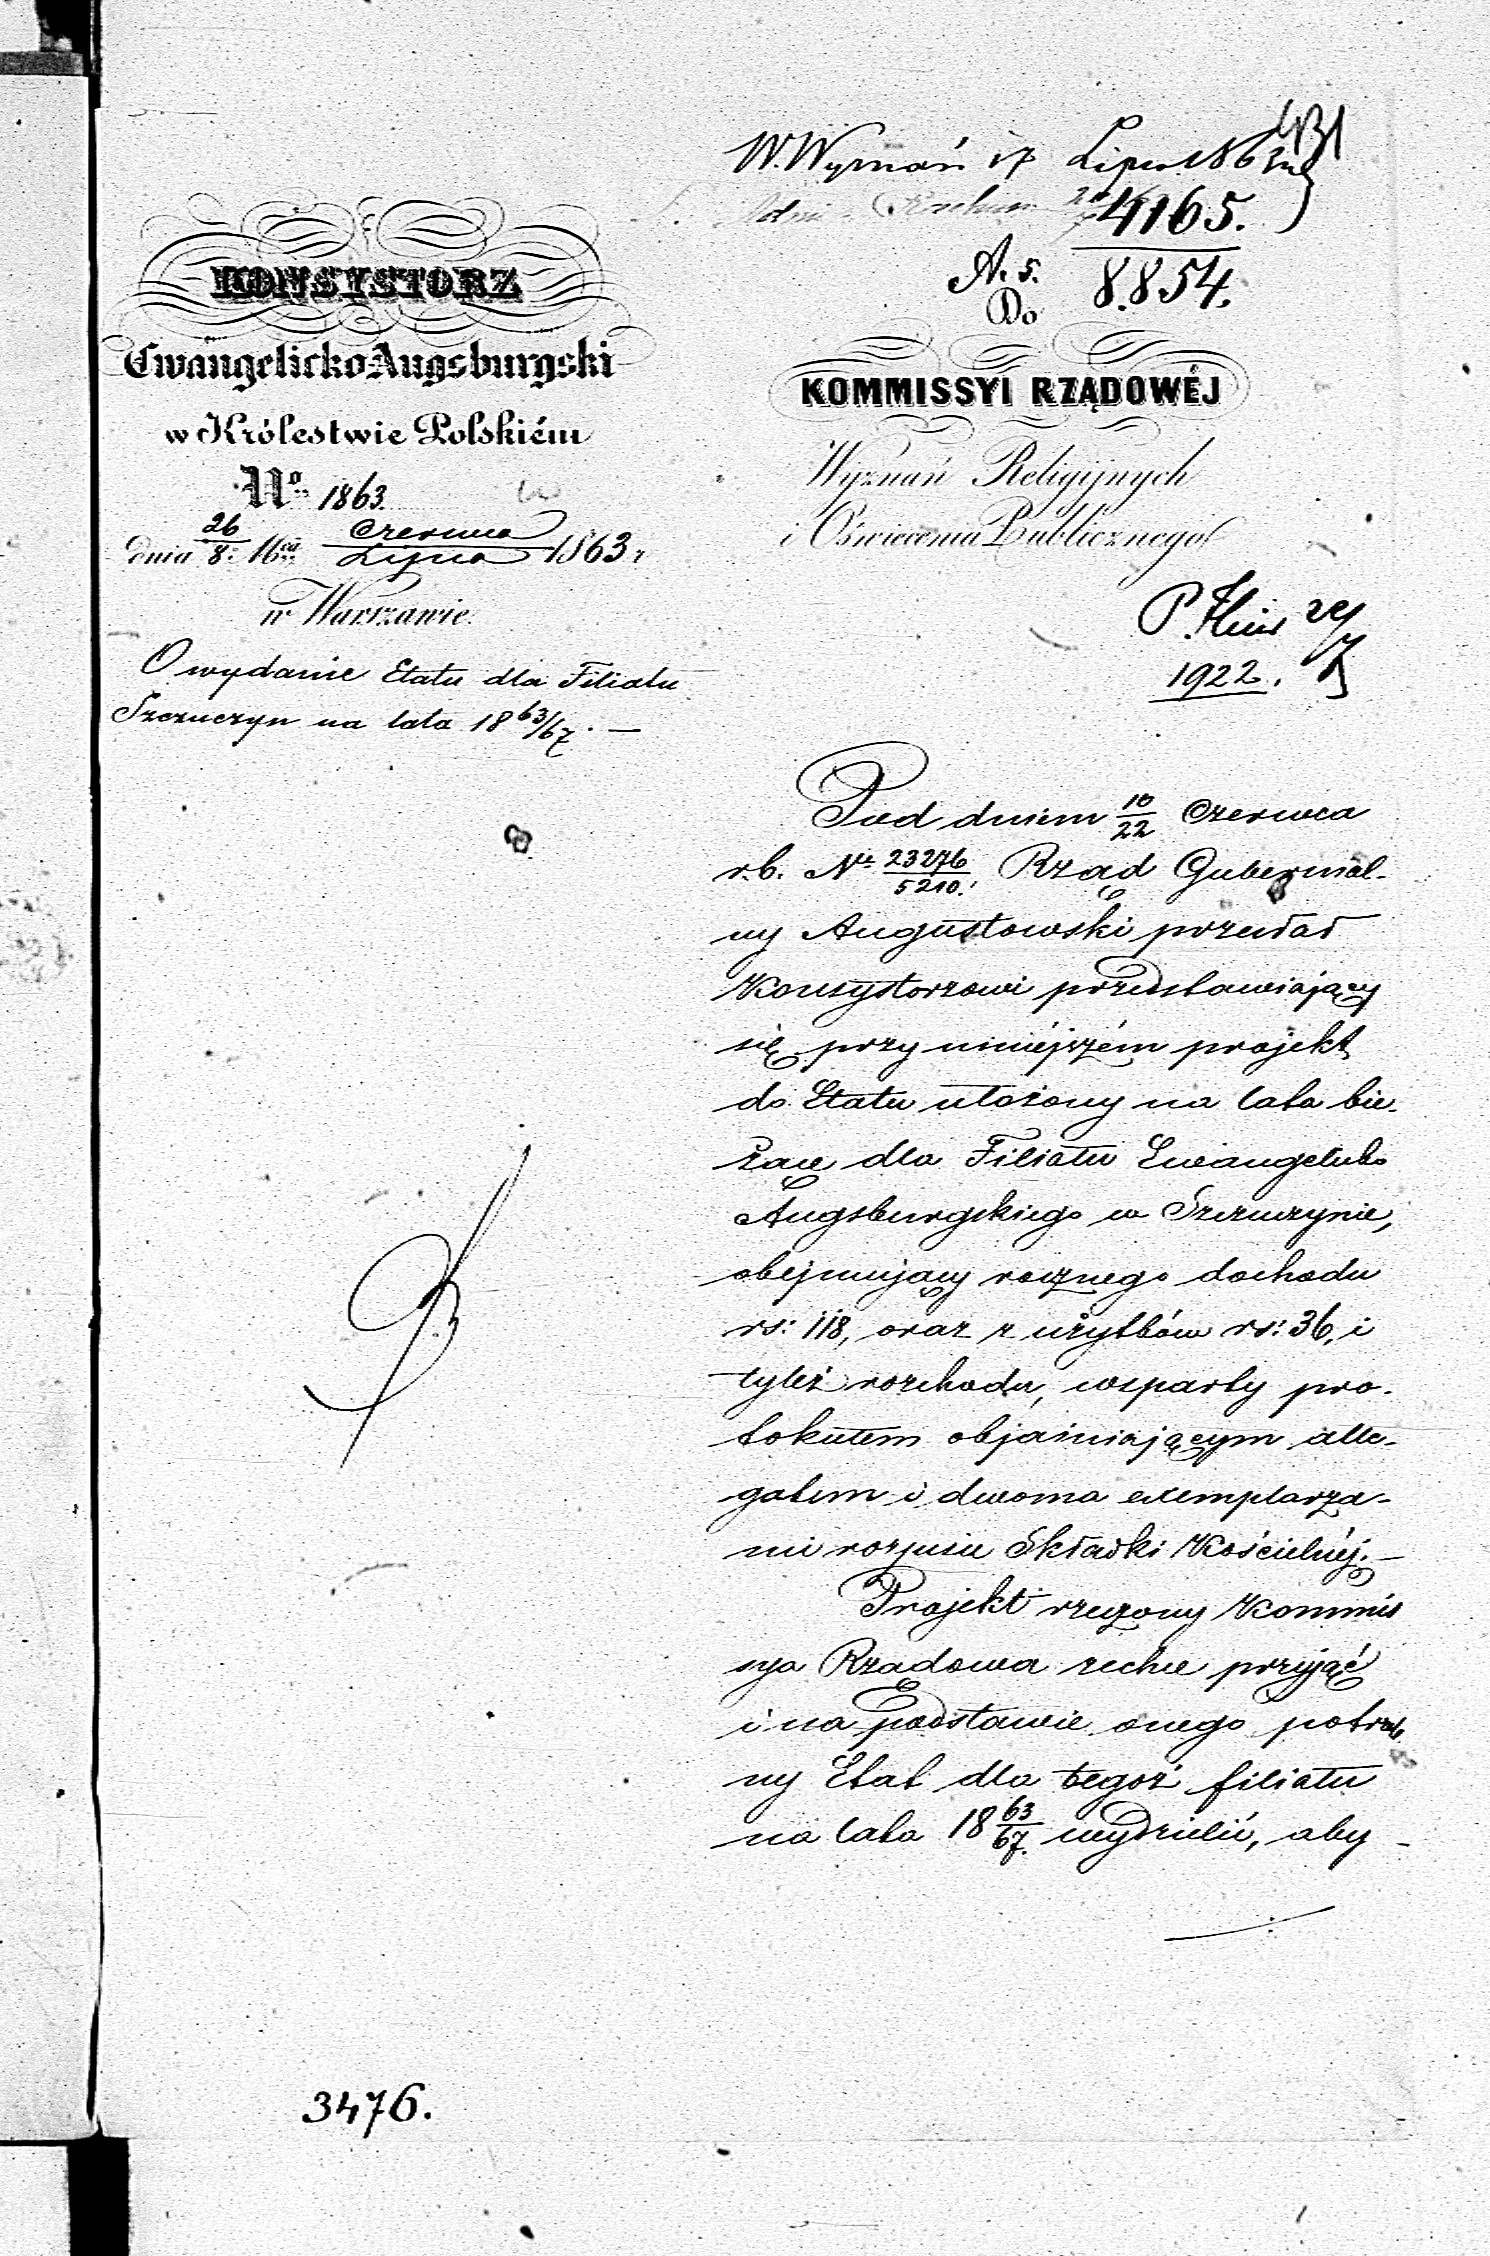 W. Wyznań 17 Lipca 1863
4165.
8.854.
A. 5.
Do
KONSYSTORZ
Ewangelicko Augsburgski
w Królestwie Polskiém
No 1863.
dnia 26/8. Mca Czerwca/Lipca 1863 r
w Warszawie.
O wydanie Etatu dla Filiału
Szczuczyn na lata 18 63/67. —
KOMMISSYI RZĄDOWÉJ
Wyznań Religijnych
i Oświecenia Publicznego
1922.
Pod dniem 10/22 Czerwca
r.b. No 23276/5210. Rząd Gubernial-
ny Augustowski przesłał
Konsystorzowi przedstawiający
się przy niniéjszém projekt
do Etatu ułożony na lata bie-
żące dla Filiału Ewangelicko
Augsburgskiego w Szczuczynie,
obejmujący rocznego dochodu
rs: 118, oraz z użytków rs: 36, i
tyleż rozchodu, wsparty pro-
tokułem objaśniającym alle-
gatem i dwoma exemplarza-
mi rozpisu Składki Kościelnéj. —
Projekt rzeczony Kommis
sya Rządowa zechce przyjąć
i na podstawie onego potrzeb
ny Etat dla tegoż filiału
na lata 18 63/67. wydzielić, aby
3476.